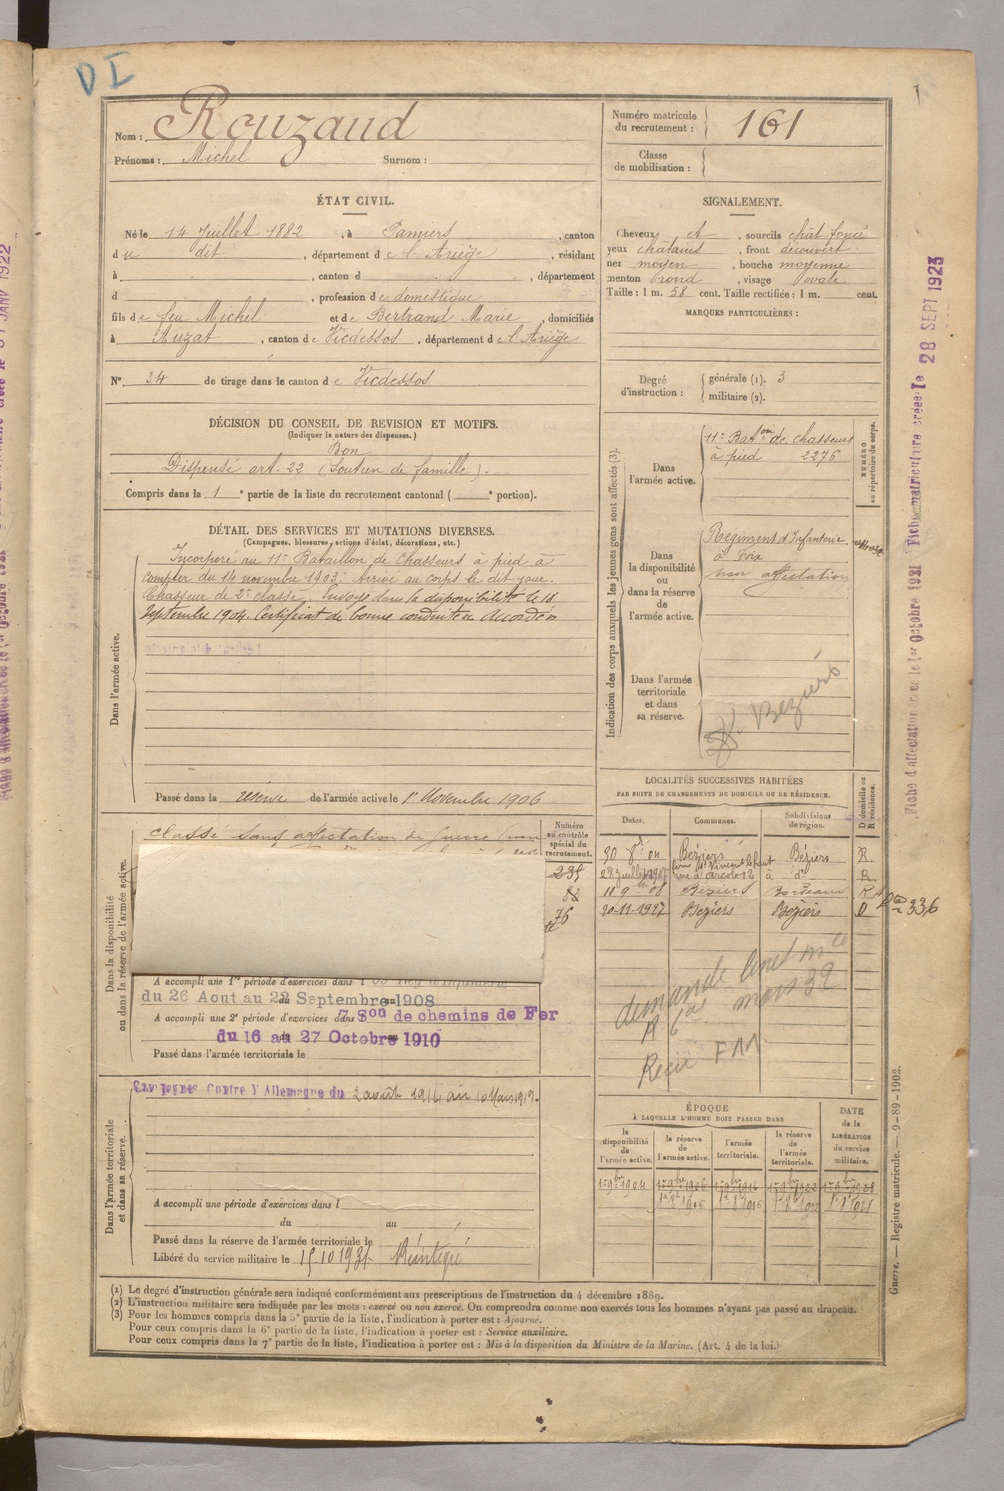 D I
Nom : Rouzaud
Prénoms : Michel Surnom :
Numéro matricule du recrutement : 161
Classe de mobilisation :
ÉTAT CIVIL.
Né le 14 Juillet 1882, à Pamiers, canton
du dit, département de l'Ariège, résidant
à , canton d , département
d , profession de domestique
fils de feu Michel et de Bertrand Marie, domiciliés
à Auzat, canton de Vicdessos, département de l'Ariège
N° 34 de tirage dans le canton de Vicdessos
SIGNALEMENT.
Cheveux et , sourcils chât foncé
yeux châtains, front découvert
nez moyen, bouche moyenne
menton rond, visage ovale
Taille : 1 m. 58 cent. Taille rectifiée : 1 m. cent.
MARQUES PARTICULIÈRES :
Degré d'instruction : générale (1). 3
militaire (2).
DÉCISION DU CONSEIL DE REVISION ET MOTIFS.
(Indiquer la nature des dispenses.)
Bon
Dispensé art. 22 (Soutien de famille).
Compris dans la 1e partie de la liste du recrutement cantonal ( e portion).
DÉTAIL DES SERVICES ET MUTATIONS DIVERSES.
(Campagnes, blessures, actions d'éclat, décorations, etc.)
Dans l'armée active.
Incorporé au 11e Bataillon de Chasseurs à pied à
compter du 14 novembre 1903. Arrivé au corps le dit jour.
Chasseur de 2e classe. Envoyé dans la disponibilité le 18
Septembre 1904. Certificat de bonne conduite Accordé
Passé dans la réserve de l'armée active le 1er Novembre 1906
Indication des corps auxquels les jeunes gens sont affectés (3).
NUMÉRO au répertoire du corps.
Dans l'armée active.
11e Baton de Chasseurs
à pied 2276
Dans la disponibilité ou dans la réserve de l'armée active.
Régiment d'Infanterie
à Foix
non affectation
Dans l'armée territoriale et dans sa réserve.
Béziers
Dans la disponibilité ou dans la réserve de l'armée active
Classé sans affectation de Guerre (non
Numéro au contrôle spécial du recrutement.
235
76
A accompli une 1re période d'exercices dans l
du 26 Aout au 22 Septembre 1908
A accompli une 2e période d'exercices dans
7 Son de chemins de Fer
du 16 au 27 Octobre 1910
Passé dans l'armée territoriale le
LOCALITÉS SUCCESSIVES HABITÉES
PAR SUITE DE CHANGEMENTS DE DOMICILE OU DE RÉSIDENCE.
Dates. Communes. Subdivisions de région. D domicile ou R résidence.
30 Béziers Béziers R.
R
Béziers Bordeaux R
20-11-1927 Béziers Béziers D
336
demande livret
mars 32
Reçu FM
Dans l'armée territoriale et dans sa réserve.
Campagnes Contre l'Allemagne du 2 août 1914 au 10 Mars 1919.
A accompli une période d'exercices dans l
du au
Passé dans la réserve de l'armée territoriale le
Libéré du service militaire le 15.10 1931
ÉPOQUE
À LAQUELLE L'HOMME DOIT PASSER DANS
la disponibilité de l'armée active.
la réserve de l'armée active.
l'armée territoriale.
la réserve de l'armée territoriale.
DATE de la LIBÉRATION du service militaire.
(1) Le degré d'instruction générale sera indiqué conformément aux prescriptions de l'instruction du 4 décembre 1889.
(2) L'instruction militaire sera indiquée par les mots : exercé ou non exercé. On comprendra comme non exercés tous les hommes n'ayant pas passé au drapeau.
(3) Pour les hommes compris dans la 5e partie de la liste, l'indication à porter est : Ajourné.
Pour ceux compris dans la 6e partie de la liste, l'indication à porter est : Service auxiliaire.
Pour ceux compris dans la 7e partie de la liste, l'indication à porter est : Mis à la disposition du Ministre de la Marine. (Art. 4 de la loi.)
Fiche d'affectation créée le 1er Octobre 1921 Fiche matriculaire créée le 28 SEPT 1923
Guerre. — Registre matricule. — 9-89-1902.